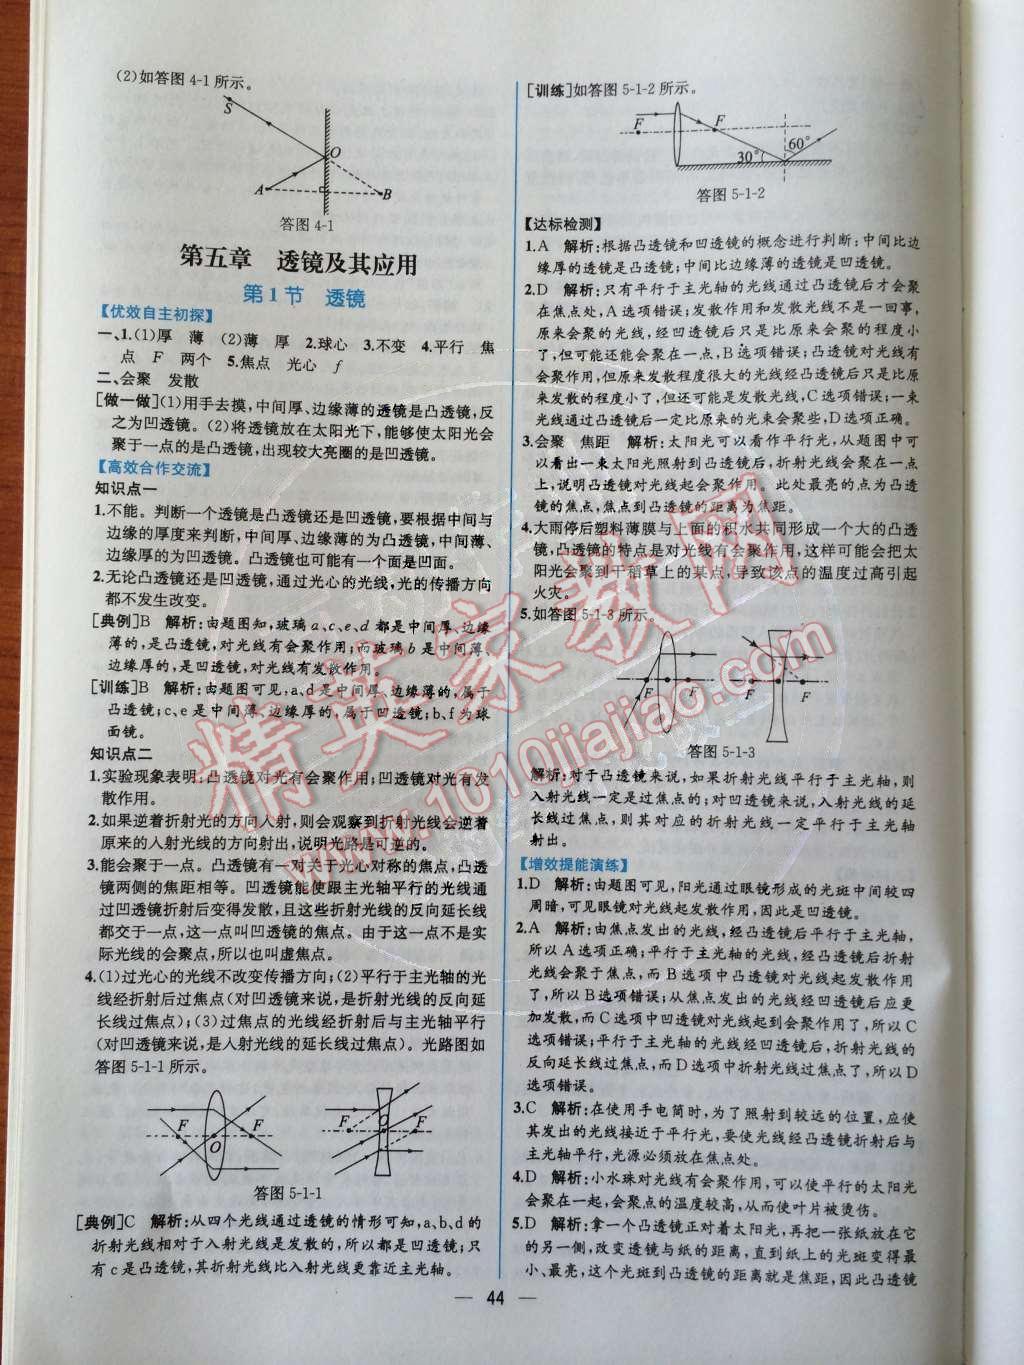 (2)如答图4-1所示。
S
O
A
B
答图4-1
第五章　透镜及其应用
第1节　透镜
【优效自主初探】
一、1.(1)厚　薄　(2)薄　厚　2.球心　3.不变　4.平行　焦
点　F　两个　5.焦点　光心　f
二、会聚　发散
[做一做](1)用手去摸,中间厚、边缘薄的透镜是凸透镜,反
之为凹透镜。(2)将透镜放在太阳光下,能够使太阳光会
聚于一点的是凸透镜,出现较大亮圈的是凹透镜。
【高效合作交流】
知识点一
1.不能。判断一个透镜是凸透镜还是凹透镜,要根据中间与
边缘的厚度来判断,中间厚、边缘薄的为凸透镜,中间薄、
边缘厚的为凹透镜。凸透镜也可能有一个面是凹面。
2.无论凸透镜还是凹透镜,通过光心的光线,光的传播方向
都不发生改变。
[典例]B　解析:由题图知,玻璃a、c、e、d都是中间厚、边缘
薄的,是凸透镜,对光线有会聚作用;而玻璃b是中间薄、
边缘厚的,是凹透镜,对光线有发散作用。
[训练]B　解析:由题图可见,a、d是中间厚、边缘薄的,属于
凸透镜;c、e是中间薄、边缘厚的,属于凹透镜;b、f为球
面镜。
知识点二
1.实验现象表明:凸透镜对光有会聚作用;凹透镜对光有发
散作用。
2.如果逆着折射光的方向入射,则会观察到折射光线会逆着
原来的入射光线的方向射出,说明光路是可逆的。
3.能会聚于一点。凸透镜有一对关于光心对称的焦点,凸透
镜两侧的焦距相等。凹透镜能使跟主光轴平行的光线通
过凹透镜折射后变得发散,且这些折射光线的反向延长线
都交于一点,这一点叫凹透镜的焦点。由于这一点不是实
际光线的会聚点,所以也叫虚焦点。
4.(1)过光心的光线不改变传播方向;(2)平行于主光轴的光
线经折射后过焦点(对凹透镜来说,是折射光线的反向延
长线过焦点);(3)过焦点的光线经折射后与主光轴平行
(对凹透镜来说,是入射光线的延长线过焦点)。光路图如
答图5-1-1所示。
F O F F O F
答图5-1-1
[典例]C　解析:从四个光线通过透镜的情形可知,a、b、d的
折射光线相对于入射光线是发散的,所以都是凹透镜;只
有c是凸透镜,其折射光线比入射光线更靠近主光轴。
[训练]如答图5-1-2所示。
F F 30° 60°
答图5-1-2
【达标检测】
1.A　解析:根据凸透镜和凹透镜的概念进行判断;中间比边
缘厚的透镜是凸透镜;中间比边缘薄的透镜是凹透镜。
2.D　解析:只有平行于主光轴的光线通过凸透镜后才会聚
在焦点处,A选项错误;发散作用和发散光线不是一回事,
原来会聚的光线,经凹透镜后只是比原来会聚的程度小
了,但可能还能会聚在一点,B选项错误;凸透镜对光线有
会聚作用,但原来发散程度很大的光线经凸透镜后只是比原
来发散的程度小了,但还可能是发散光线,C选项错误;一
束光线通过凸透镜后一定比原来的光束会聚些,D选项正确。
3.会聚　焦距　解析:太阳光可以看作平行光,从题图中可
以看出一束太阳光照射到凸透镜后,折射光线会聚在一点
上,说明凸透镜对光线起会聚作用。此处最亮的点为凸透
镜的焦点,焦点到凸透镜的距离为焦距。
4.大雨停后塑料薄膜与上面的积水共同形成一个大的凸透
镜,凸透镜的特点是对光线有会聚作用,这样可能会把太
阳光会聚到干稻草上的某点,导致该点的温度过高引起
火灾。
5.如答图5-1-3所示。
F F F F
答图5-1-3
解析:对于凸透镜来说,如果折射光线平行于主光轴,则
入射光线一定是过焦点的;对凹透镜来说,入射光线的延
长线过焦点,则其对应的折射光线一定平行于主光轴
射出。
【增效提能演练】
1.D　解析:由题图可见,阳光通过眼镜形成的光斑中间较四
周暗,可见眼镜对光线起发散作用,因此是凹透镜。
2.A　解析:由焦点发出的光线,经凸透镜后平行于主光轴,
所以A选项正确;平行于主光轴的光线,经凸透镜后折射
光线会聚于焦点,而B选项中凸透镜对光线起发散作用
了,所以B选项错误;从焦点发出的光线经凹透镜后应更
加发散,而C选项中凹透镜对光线起到会聚作用了,所以C
选项错误;平行于主光轴的光线经凹透镜后,折射光线的
反向延长线过焦点,而D选项中折射光线过焦点了,所以D
选项错误。
3.C　解析:在使用手电筒时,为了照射到较远的位置,应使
其发出的光线接近于平行光,要使光线经凸透镜折射后与
主光轴平行,光源必须放在焦点处。
4.D　解析:小水珠对光线有会聚作用,可以使平行的太阳光
会聚在一起,会聚点的温度较高,从而使叶片被烫伤。
5.D　解析:拿一个凸透镜正对着太阳光,再把一张纸放在它
的另一侧,改变透镜与纸的距离,直到纸上的光斑变得最
小、最亮,这个光斑到凸透镜的距离就是焦距,因此凸透镜
— 44 —
精英家教网
www.1010jiajiao.com